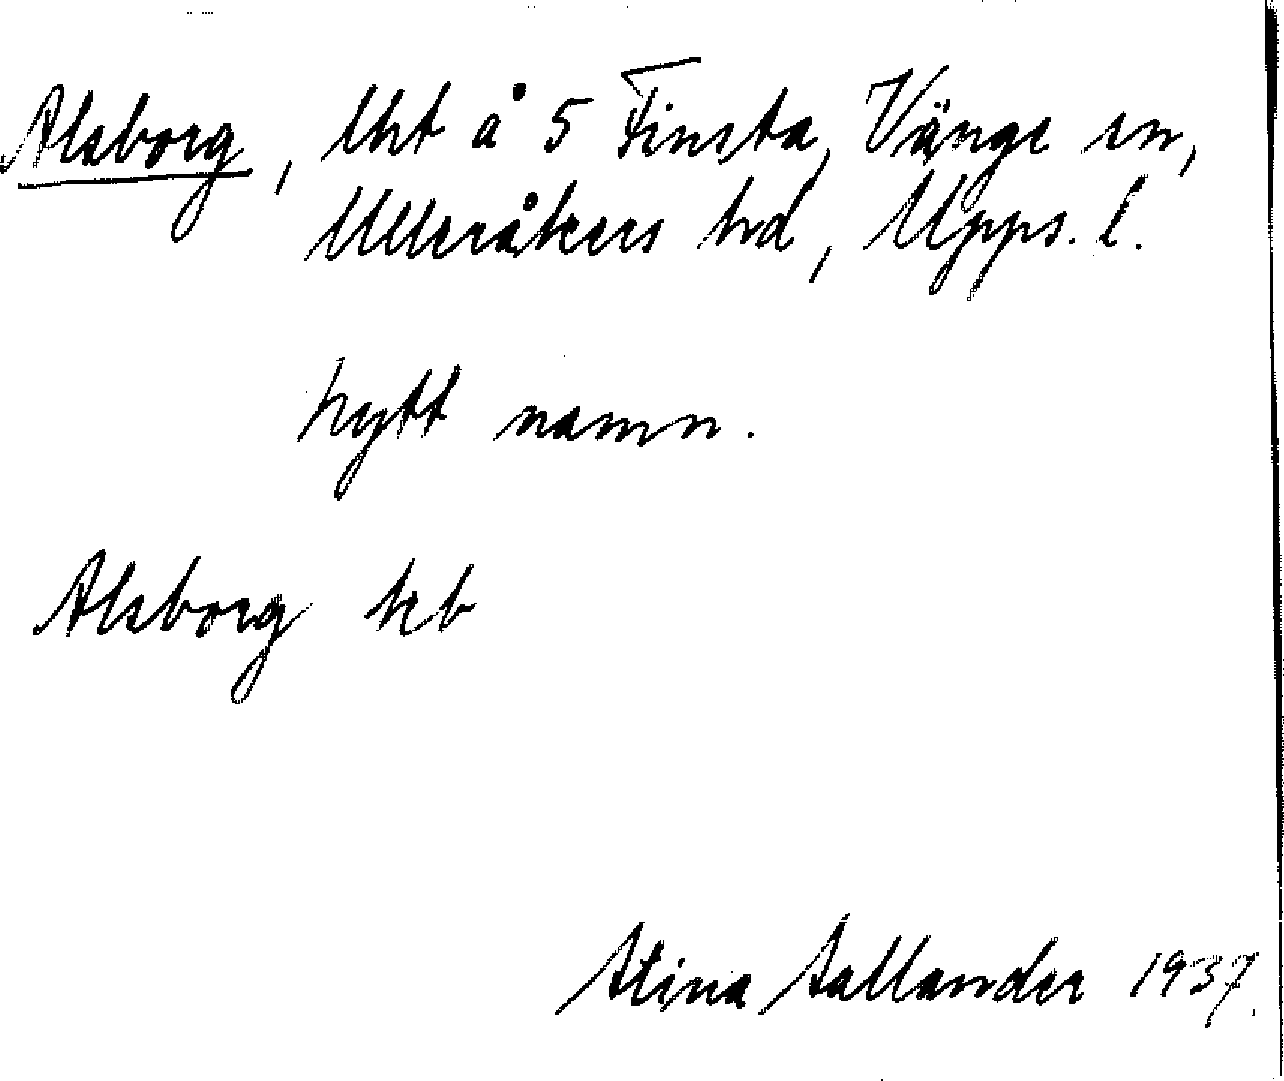 Alsborg, lht å 5 Finsta, Vänge sn,
Ulleråkers hd, Upps. l.
nytt namn.
Alsborg kb
Stina Sallander 1937.